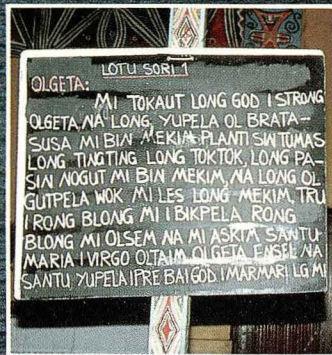 LOTU SORI 1
OLGETA:
MI TOKAUT LONG GOD I STRONG
OLGETA, NA LONG, YUPELA OL BRATA-
SUSA MI BIN MEKIM PLANTI SIN TUMAS
LONG TINGTING LONG TOKTOK, LONG PA-
SIN NOGUT MI BIN MEKIM, NA LONG OL
GUTPELA WOK MI LES LONG MEKIM, TRU
I RONG BLONG MI I BIKPELA RONG
BLONG MI OLSEM NA MI ASKIM SANTU
MARIA I VIRGO OLTAIM OLGETA ENSEL NA
SANTU YUPELA I PRE BAI GOD I MARMARI LG MI